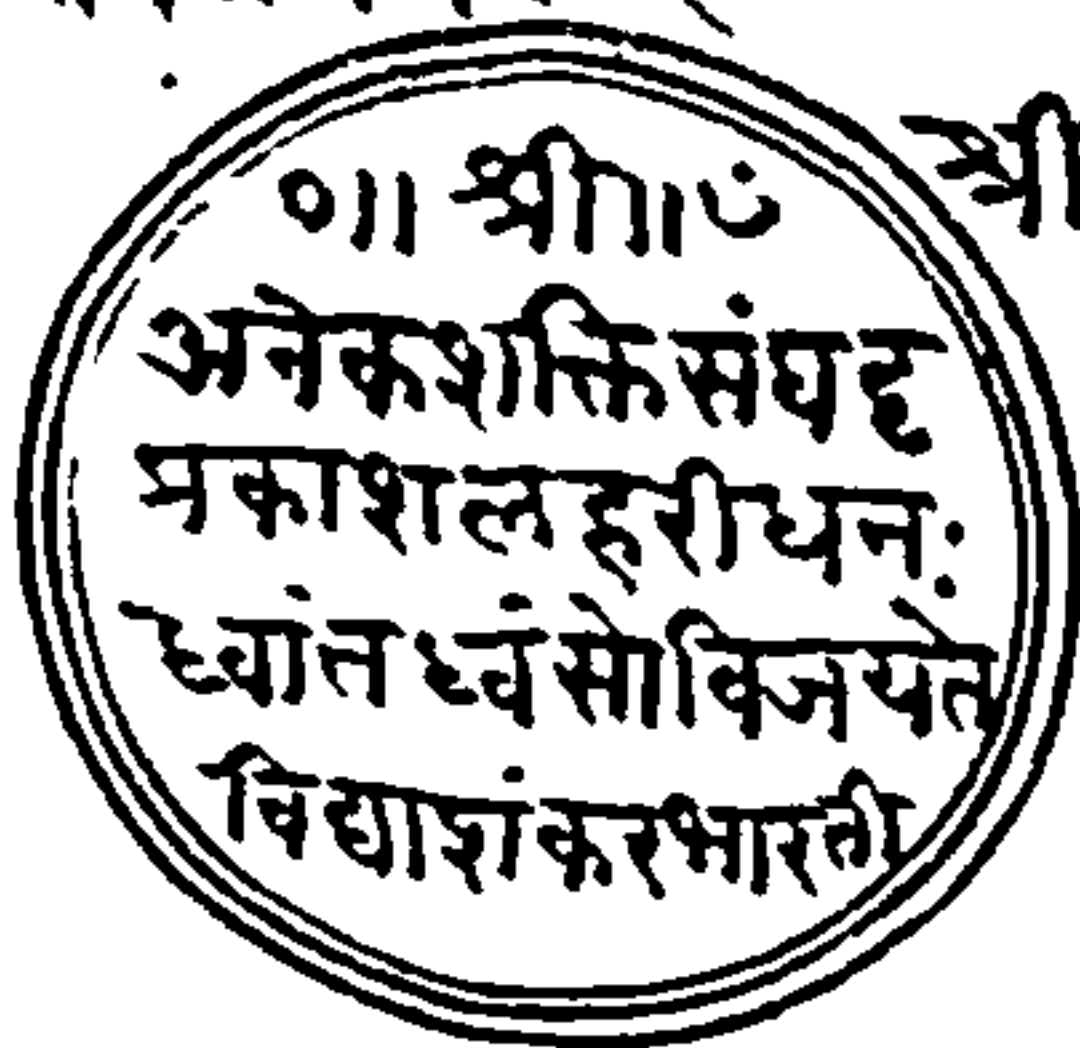 ०॥ श्री॥ ꣳ
अनेकशक्तिसंघट्ट
प्रकाशलहरीघनः
ध्वांतध्वंसोविजयते
विद्याशंकरभारती
श्री